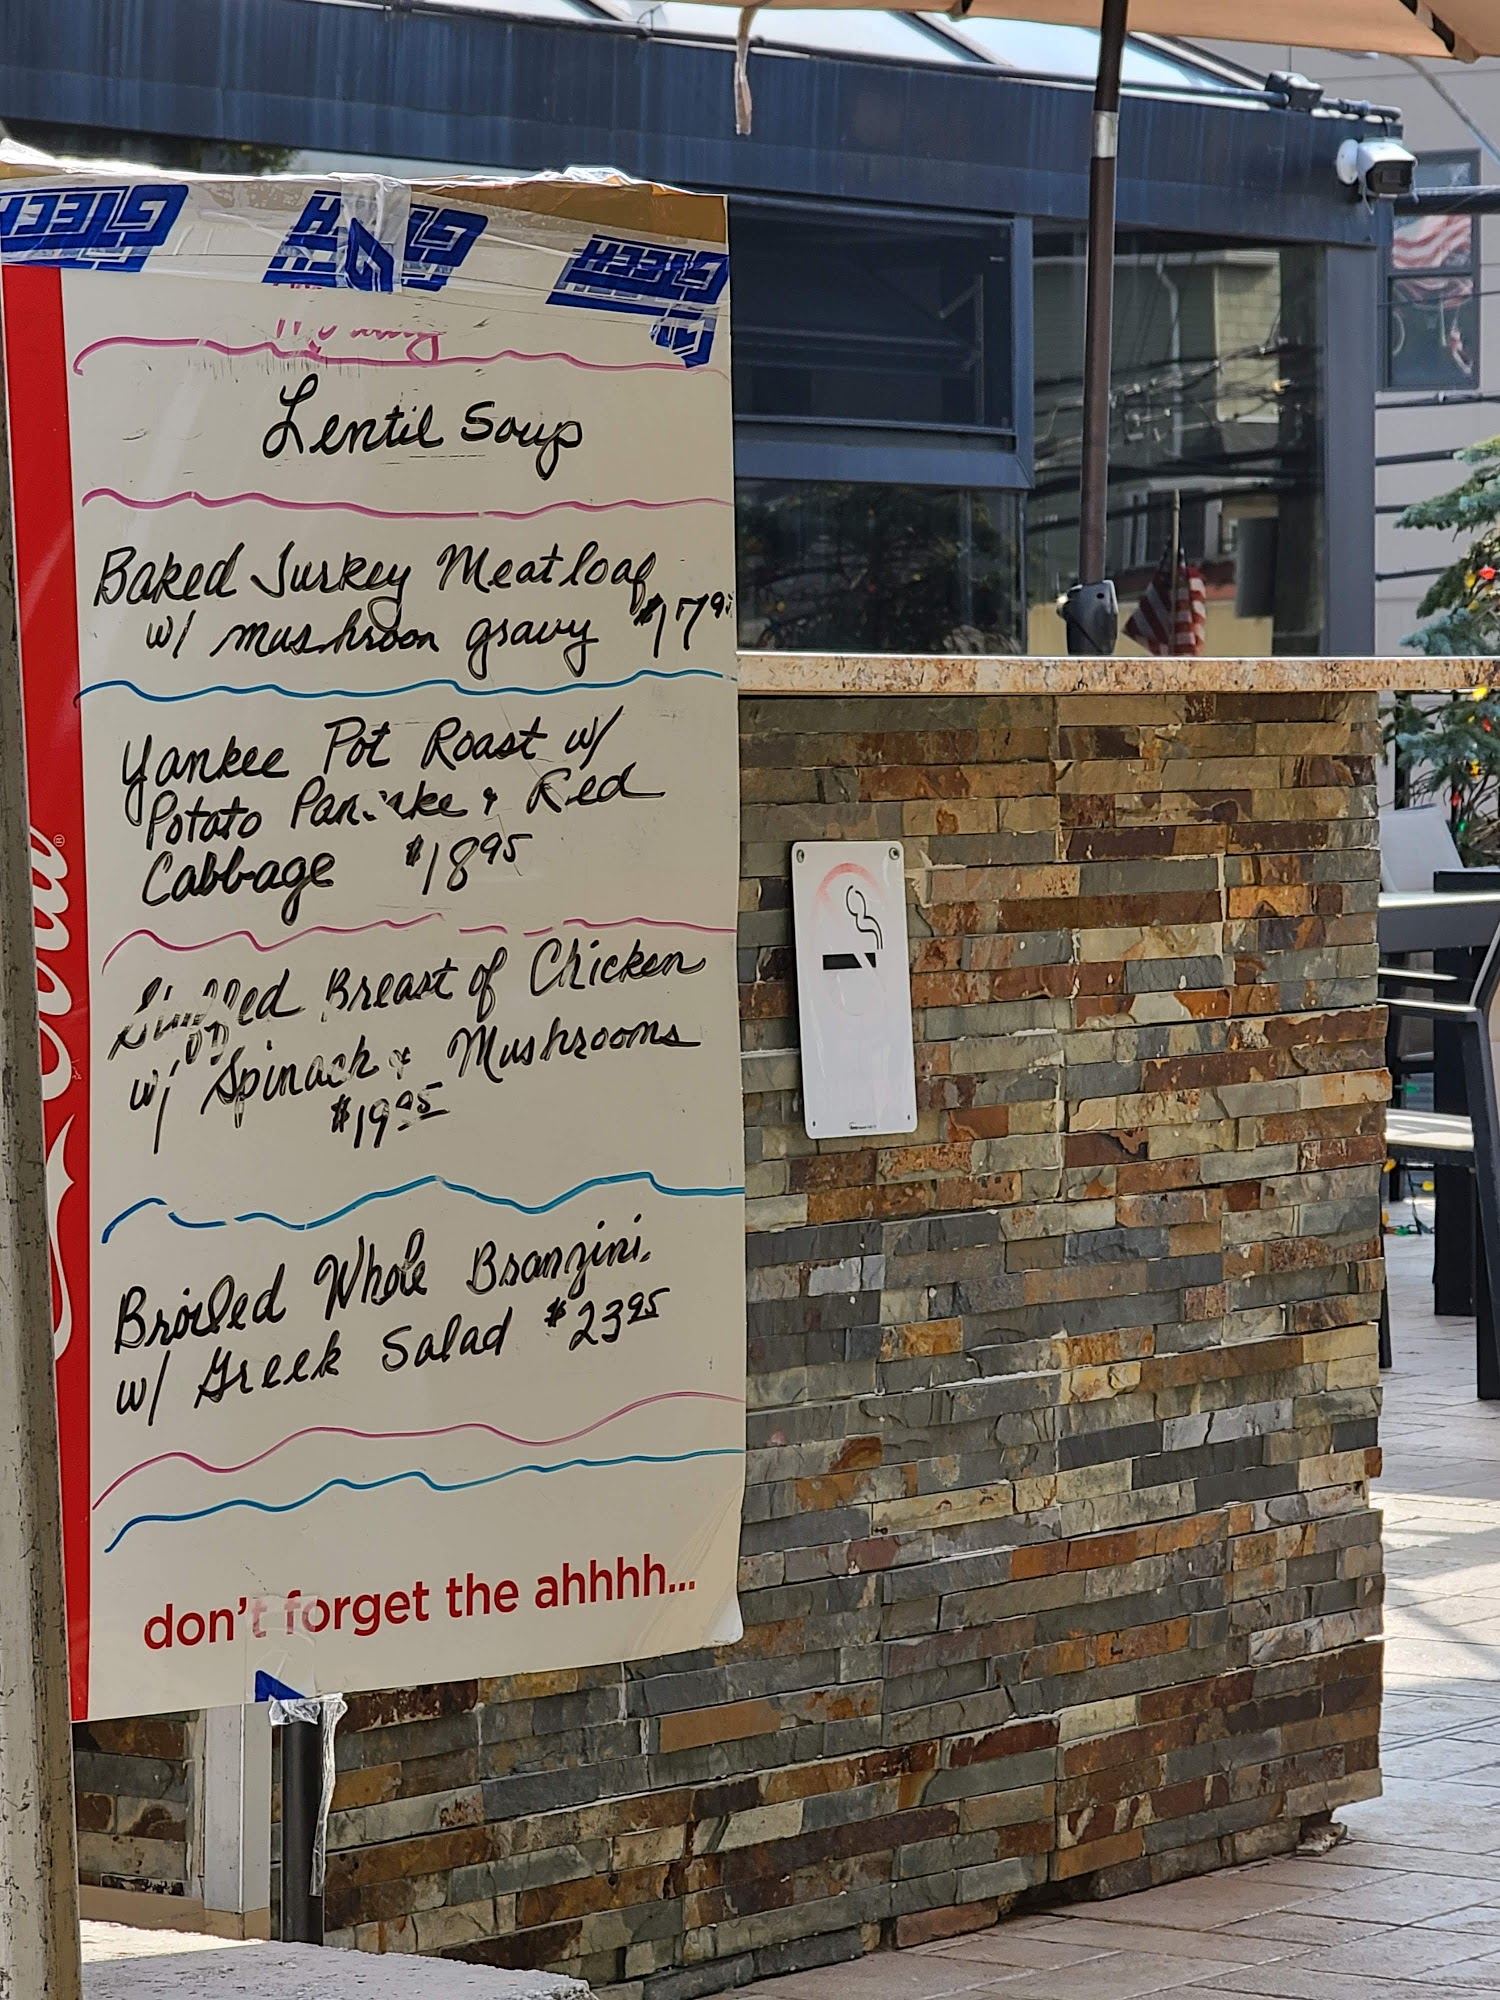 GTECH
GTECH
GTECH
Lentil Soup
Baked Turkey Meatloaf
w/ mushroom gravy $17
Yankee Pot Roast w/
Potato Pancake & Red
Cabbage $18.95
Stuffed Breast of Chicken
w/ Spinach & Mushrooms
$19.95
Broiled Whole Branzini.
w/ Greek Salad $23.95
don't forget the ahhhh...
Cola®